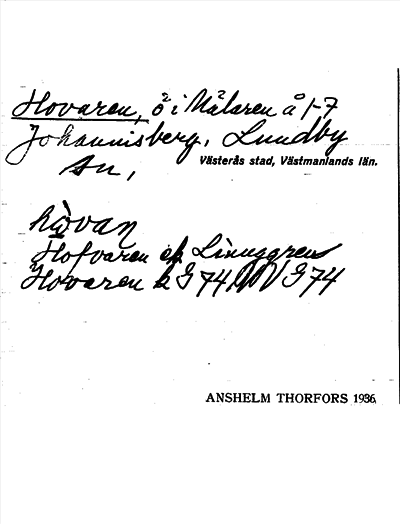 Hovaren, ö i Mälaren å 1-7
Johannisberg, Lundby
sn,
Västerås stad, Västmanlands län.
hòvan
Hofvaren ek Linnggrens
Hovaren k G 74 NV G 74
ANSHELM THORFORS 1936.